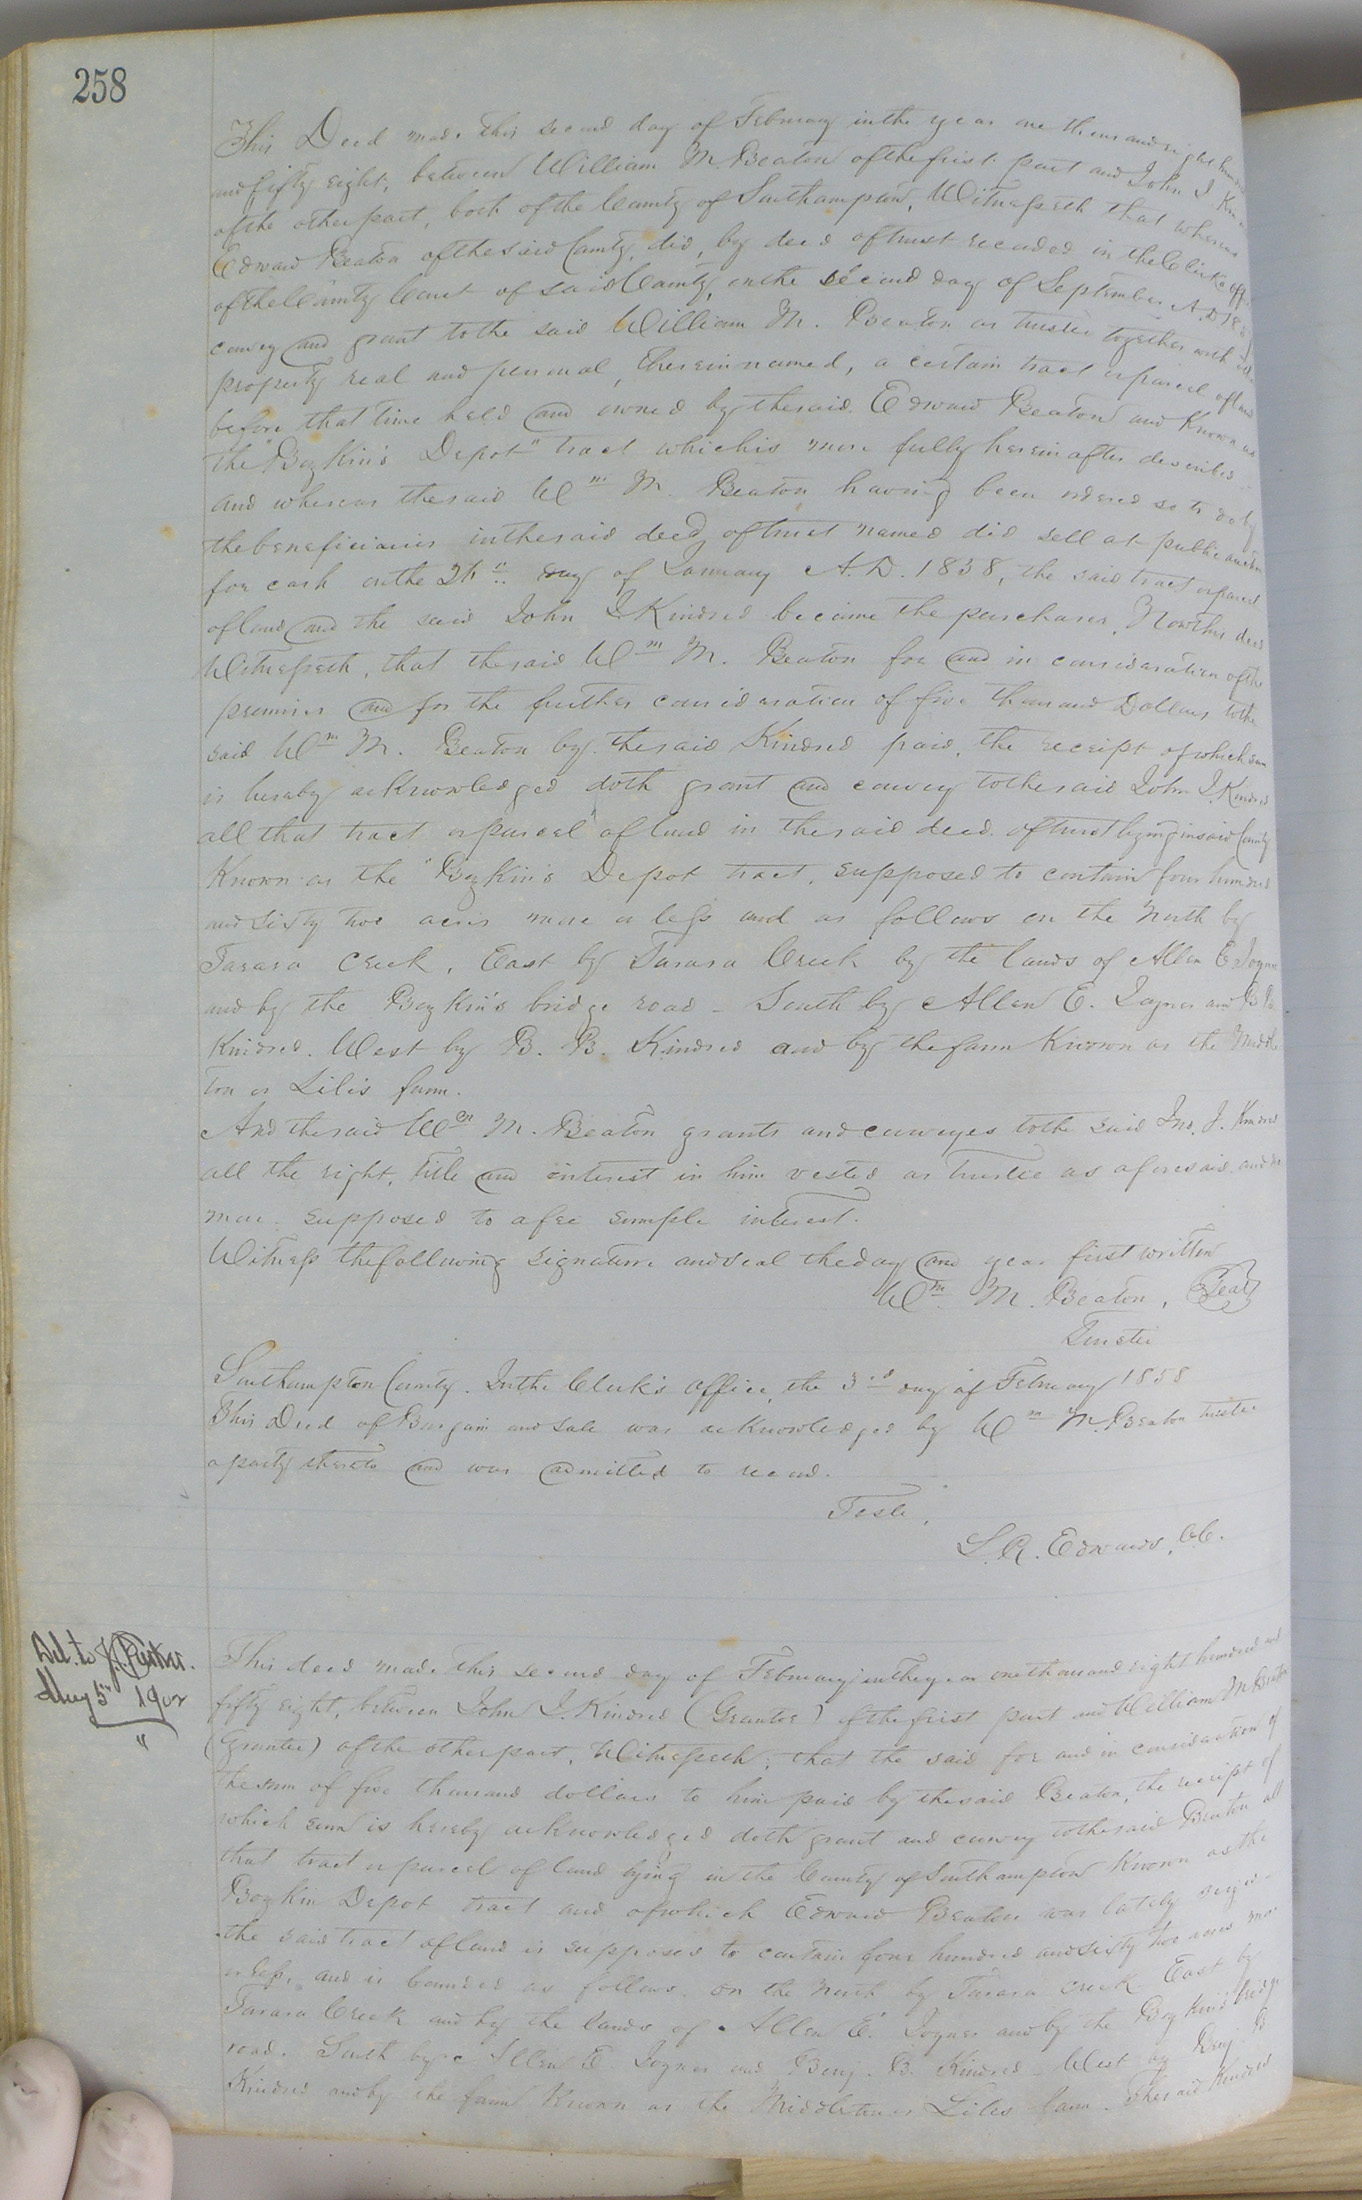 258
This Deed made this second day of February in the year one thousand eight hundred
and fifty eight, between William M. Beaton of the first part and John J Kindred
of the other part, both of the County of Southampton, Witnesseth that whereas
Edward Beaton of the said County, did, by deed of trust recorded in the Clerks office
of the County Court of said County, on the second day of September A.D 18
convey and grant to the said William M. Beaton as trustee together with
property real and personal, therein named, a certain tract or parcel of land
before that time held and owned by the said Edward Beaton and Known as
the "Boykin's Depot" tract which is more fully herein after described
and whereas the said Wm M. Beaton having been ordered so to do by
the beneficiaries in the said deed of trust named did sell at public auction
for cash on the day of January A.D. 1858, the said tract or parcel
of land and the said John J Kindred became the purchaser, Now this deed
Witnesseth, that the said Wm M. Beaton for and in consideration of the
premises and for the further consideration of five thousand Dollars to the
said Wm M. Beaton by the said Kindred paid, the receipt of which sum
is hereby acknowledged doth grant and convey to the said John J. Kindred
all that tract or parcel of land in the said deed of trust lying in said County
Known as the "Boykin's Depot tract, supposed to contain four hundred
and sixty two acres more or less and as follows on the North by
Tarara Creek, East by Tarara Creek by the lands of Allen E Joyner
and by the Boykin's bridge road - South by Allen E. Joyner and B B
Kindred. West by B. B. Kindred and by the farm Known as the Middle
ton or Lile's farm.
And the said Wm M. Beaton grants and conveyes to the said Jno. J. Kindred
all the right, title and interest in him vested as trustee as aforesaid and no
more, supposed to a fee simple interest.
Witness the following signature and seal the day and year first written
Wm M. Beaton, Seal
Trustee
Southampton County. In the Clerk's Office, the 3rd day of February 1858
This Deed of Bargain and Sale was acknowledged by Wm M. Beaton trustee
a party thereto and was admitted to record.
Teste,
L. R. Edwards, C.C.
Del. to J. Parker.
Aug 5th 1902
"
This deed made this second day of February in the year one thousand eight hundred and
fifty eight, between John J. Kindred (Grantor) of the first part and William M Beaton
(Grantee) of the other part, Witnesseth; that the said for and in consideration of
the sum of five thousand dollars to him paid by the said Beaton, the receipt of
which sum is hereby acknowledged doth grant and convey to the said Beaton all
that tract or parcel of land lying in the County of Southampton Known as the
Boykin Depot tract and of which Edward Beaton was lately
the said tract of land is supposed to contain four hundred and sixty two acres more
or less, and is bounded as follows. on the North by Tarara Creek East by
Tarara Creek and by the lands of Allen E. Joyner and by the Boykins bridge
road. South by Allen E. Joyner and Benj. B. Kindred - West by Benj B
Kindred and by the farm Known as the Middleton or Liles farm. The said Kindred